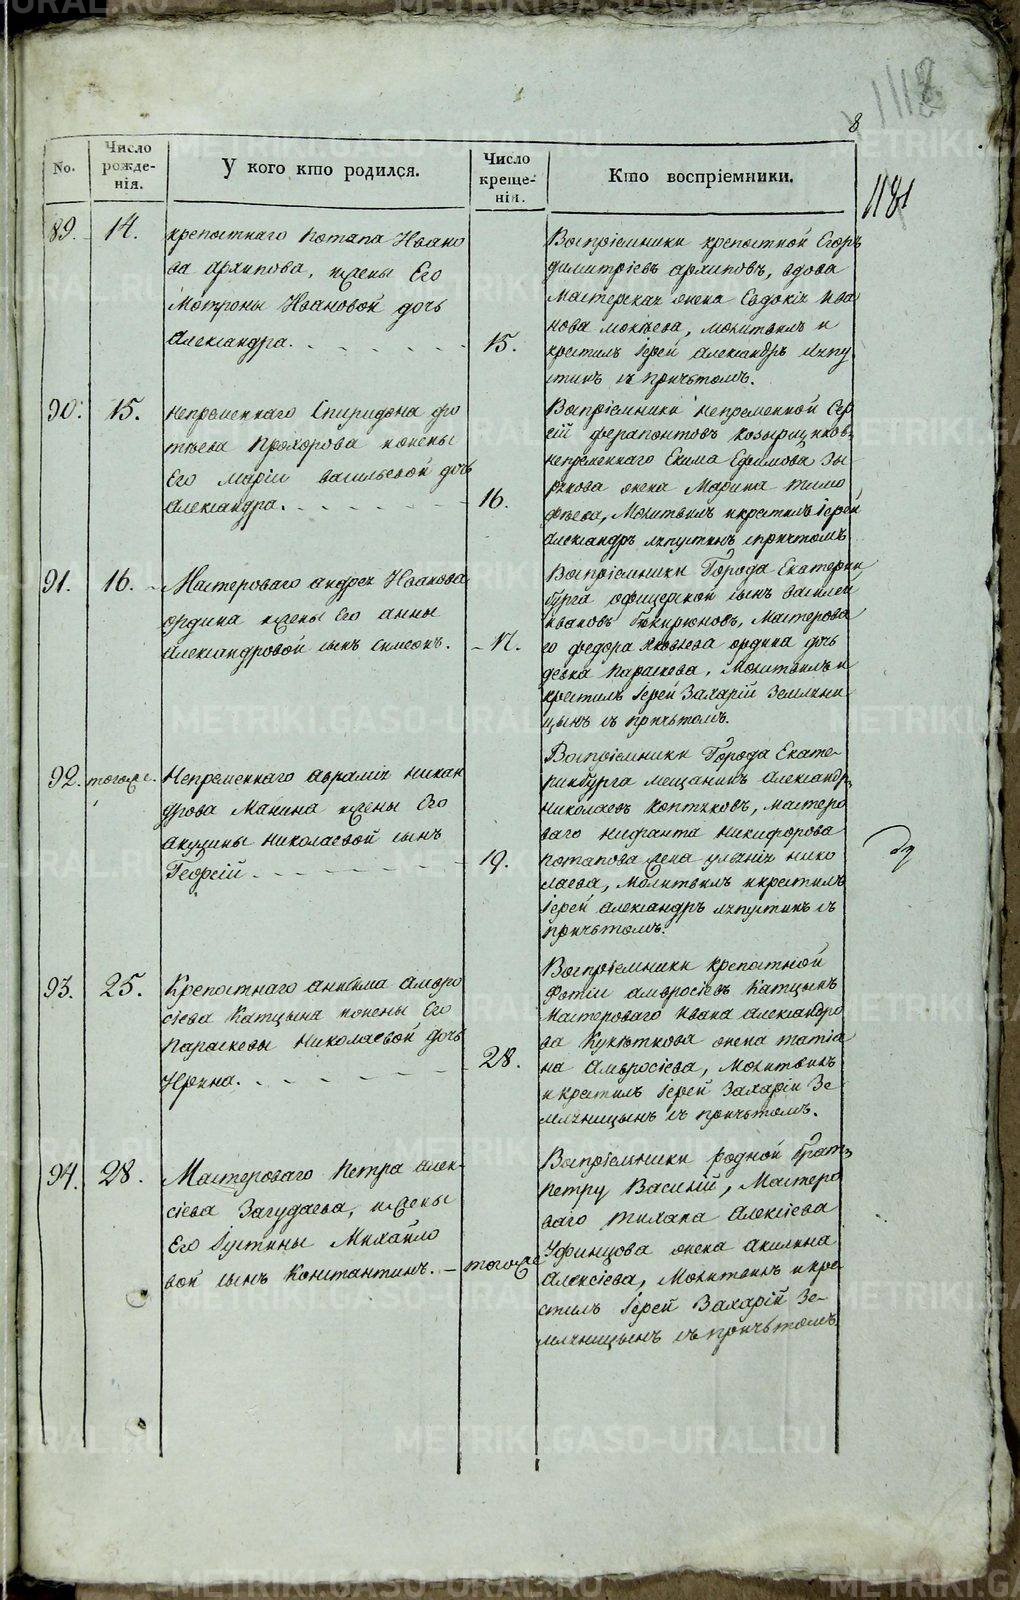 1118
8
1181
No.
Число рожденія.
У кого кто родился.
Число крещенія.
Кто воспріемники.
89.
14.
крепостнаго Потапа Ивано
ва Архипова, жены Его
Мотроны Ивановой дочь
Александра.
15.
Воспріемники крепостной Егоръ
Димитріевъ Архиповъ, вдова
Мастерская жена Евдокія Ива
нова, Молитвилъ и
крестилъ Іерей Александръ Ляпу
стинъ съ причьтомъ.
90.
15.
Непременнаго Спиридона Фо
тѣева Прохорова жены
Его Маріи Васильевой дочь
Александра.
16.
Воспріемники непременной Сер
гій Ферапонтовъ Козырщиковъ
непременнаго Екима Ефимова Зы
рянова жена Марина Тимо
фѣева, Молитвилъ и крестилъ Іерей
Александръ Ляпустинъ с причтомъ
91.
16.
Мастероваго Андрея Иванова
Ордина жены Его Анны
Александровой сынъ Симеонъ.
17.
Воспріемники Города Екатерин
бурга офицерской сынъ Василей
Ивановъ, Мастерова
го Федора Яковлева Ордина дочь
девка Параскева, Молитвилъ и
крестилъ Іерей Захарій Земляни
цынъ съ причьтомъ.
92.
тогоже.
Непременнаго Аврамія Никан
дрова Манина жены Его
Акулины Николаевой сынъ
Георгій
19.
Воспріемники Города Екате-
ринбурга мещанинъ Александръ
Николаевъ Коптяковъ, мастеро
ваго Нифанта Никифорова
Потапова жена Ульянія Нико
лаева, Молитвилъ и крестилъ
Іерей Александръ Ляпустинъ съ
причьтомъ.
93.
25.
Крепостнаго Анисима Амвро
сіева Катцына жены Его
Параскевы Николаевой дочь
Ирина.
28.
Воспріемники крепостной
Фотій Амвросіевъ Катцынъ
Мастероваго Ивана Александро
ва жена Татіа
на Амвросіева, Молитвилъ
и крестилъ Іерей Захарій Зе-
мляницынъ съ причьтомъ.
94.
28.
Мастероваго Петра Алек-
сіева Загудаева, жены
Его Іустины Михайло
вой сынъ Константинъ.
тогоже
Воспріемники родной братъ
Петру Василій, Мастеро
ваго Тихана Алексіева
Уфинцова жена Акилина
Алексіева, Молитвилъ и кре
стилъ Іерей Захарій Зе-
мляницынъ съ причьтомъ
METRIKI.GASO-URAL.RU